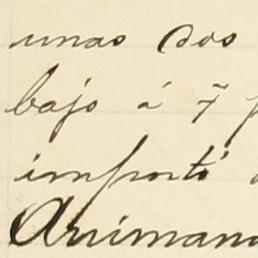 unas dos
bajo á 7 p
importó
Arrimano